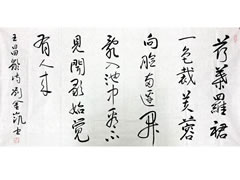 荷葉羅裙
一色裁芙蓉
向臉兩邊開
亂入池中看不
見聞歌始覺
有人来
王昌齡詩劉金凯书